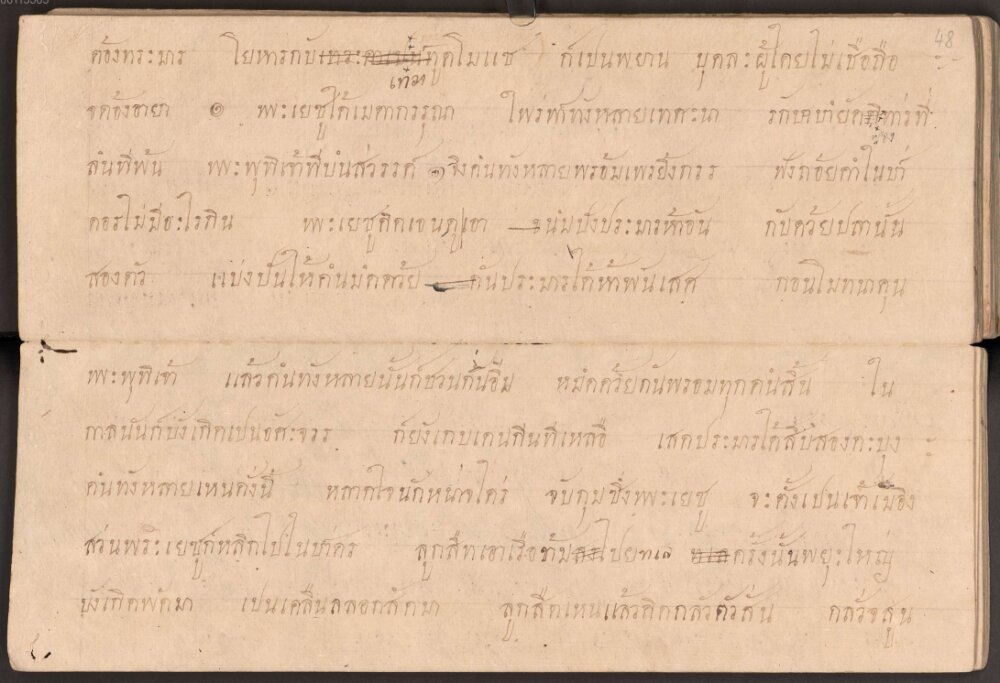 00113503
48
ต้องพระบาร โยหารกับ ทูตโมแซ ก็เปนพยาน บุคละผู้ใดยไม่เชื่อถือ
เทวา
จต้องอายา ๑ พระเยซูได้เมตากรรุณา ไพร่ฟ้าทังหลายเทศะนา รักษาบำยัด การที่
ล้นที่พ้น พระพุทิเจ้าที่บนสวรรค์ ๑ จึงคนทังหลายพร้อมเพรยิงการ ฟังถ้อยคำในป่า
ดอรไม่มีอะไรกิน พระเยซูคิดเอนดูเอา ขนมปังประมารห้าอัน กับด้วยปลานั้น
สองตัว แบ่งปันให้คนมดด้วย คนประมารได้ห้าพันเสศ กอนโมทนาคุน
พระพุทิเจ้า แล้วคนทังหลายนั้นก็ชวนกันอิ่ม หมดด้วยกันพรอมทุกคนสิ้น ใน
กาลนันก็บังเกิดเปนอัศะจรร ก็ยังเกบเดนกินที่เหลือ เสศประมารได้สิบสองกะบุง
คนทังหลายเหนดังนี้ หลากใจนักหนาจใคร่ จับกุมซึ่งพระเยซู จะตั้งเปนเจ้าเมือง
ส่วนพระเยซูก็หลีกไปในป่าดร ลูกสิทเอาเรือข้ามไปยทเล ครั้งนั้นพยุะใหญ่
บังเกิดพัดมา เปนเคลื่นลลอกสัดมา ลูกสิดเหนแล้วคิดกลัวตัวสั่น กลัวจสูน